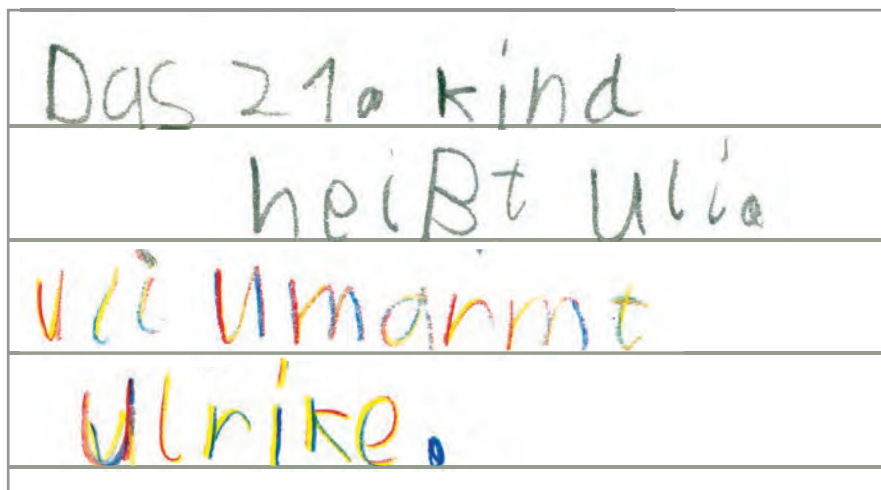 Das 21. kind
heißt Uli.
Uli Umarmt
Ulrike.